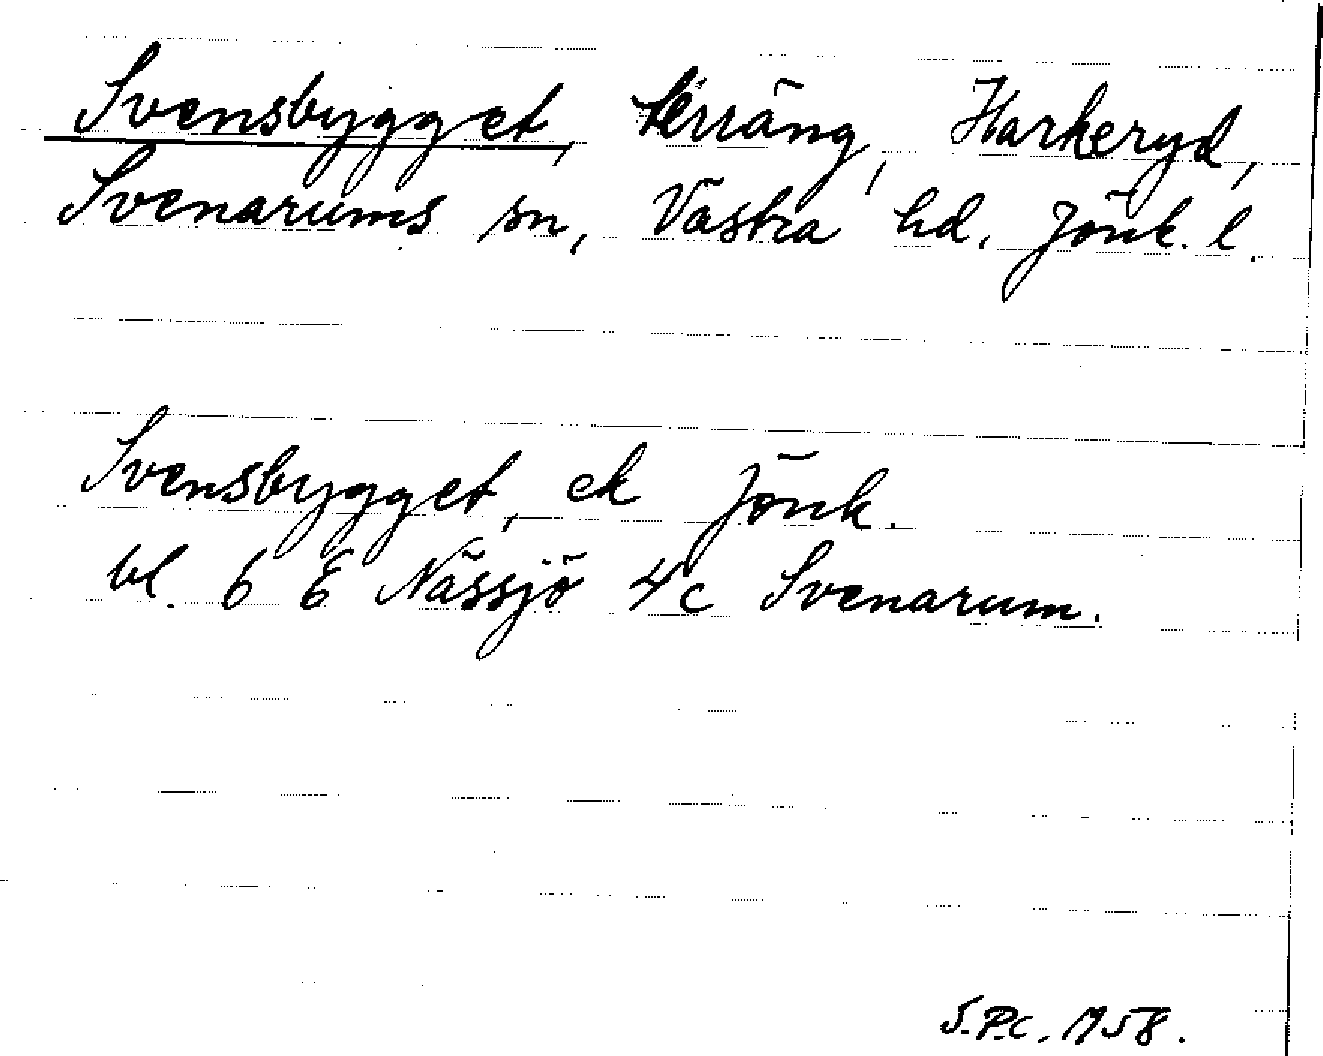 Svensbygget, terräng, Harkeryd,
Svenarums sn, Västra hd. Jönk. l.
Svensbygget, ek Jönk.
bl. 6 E Nässjö 4c Svenarum.
S.P.C. 1958.